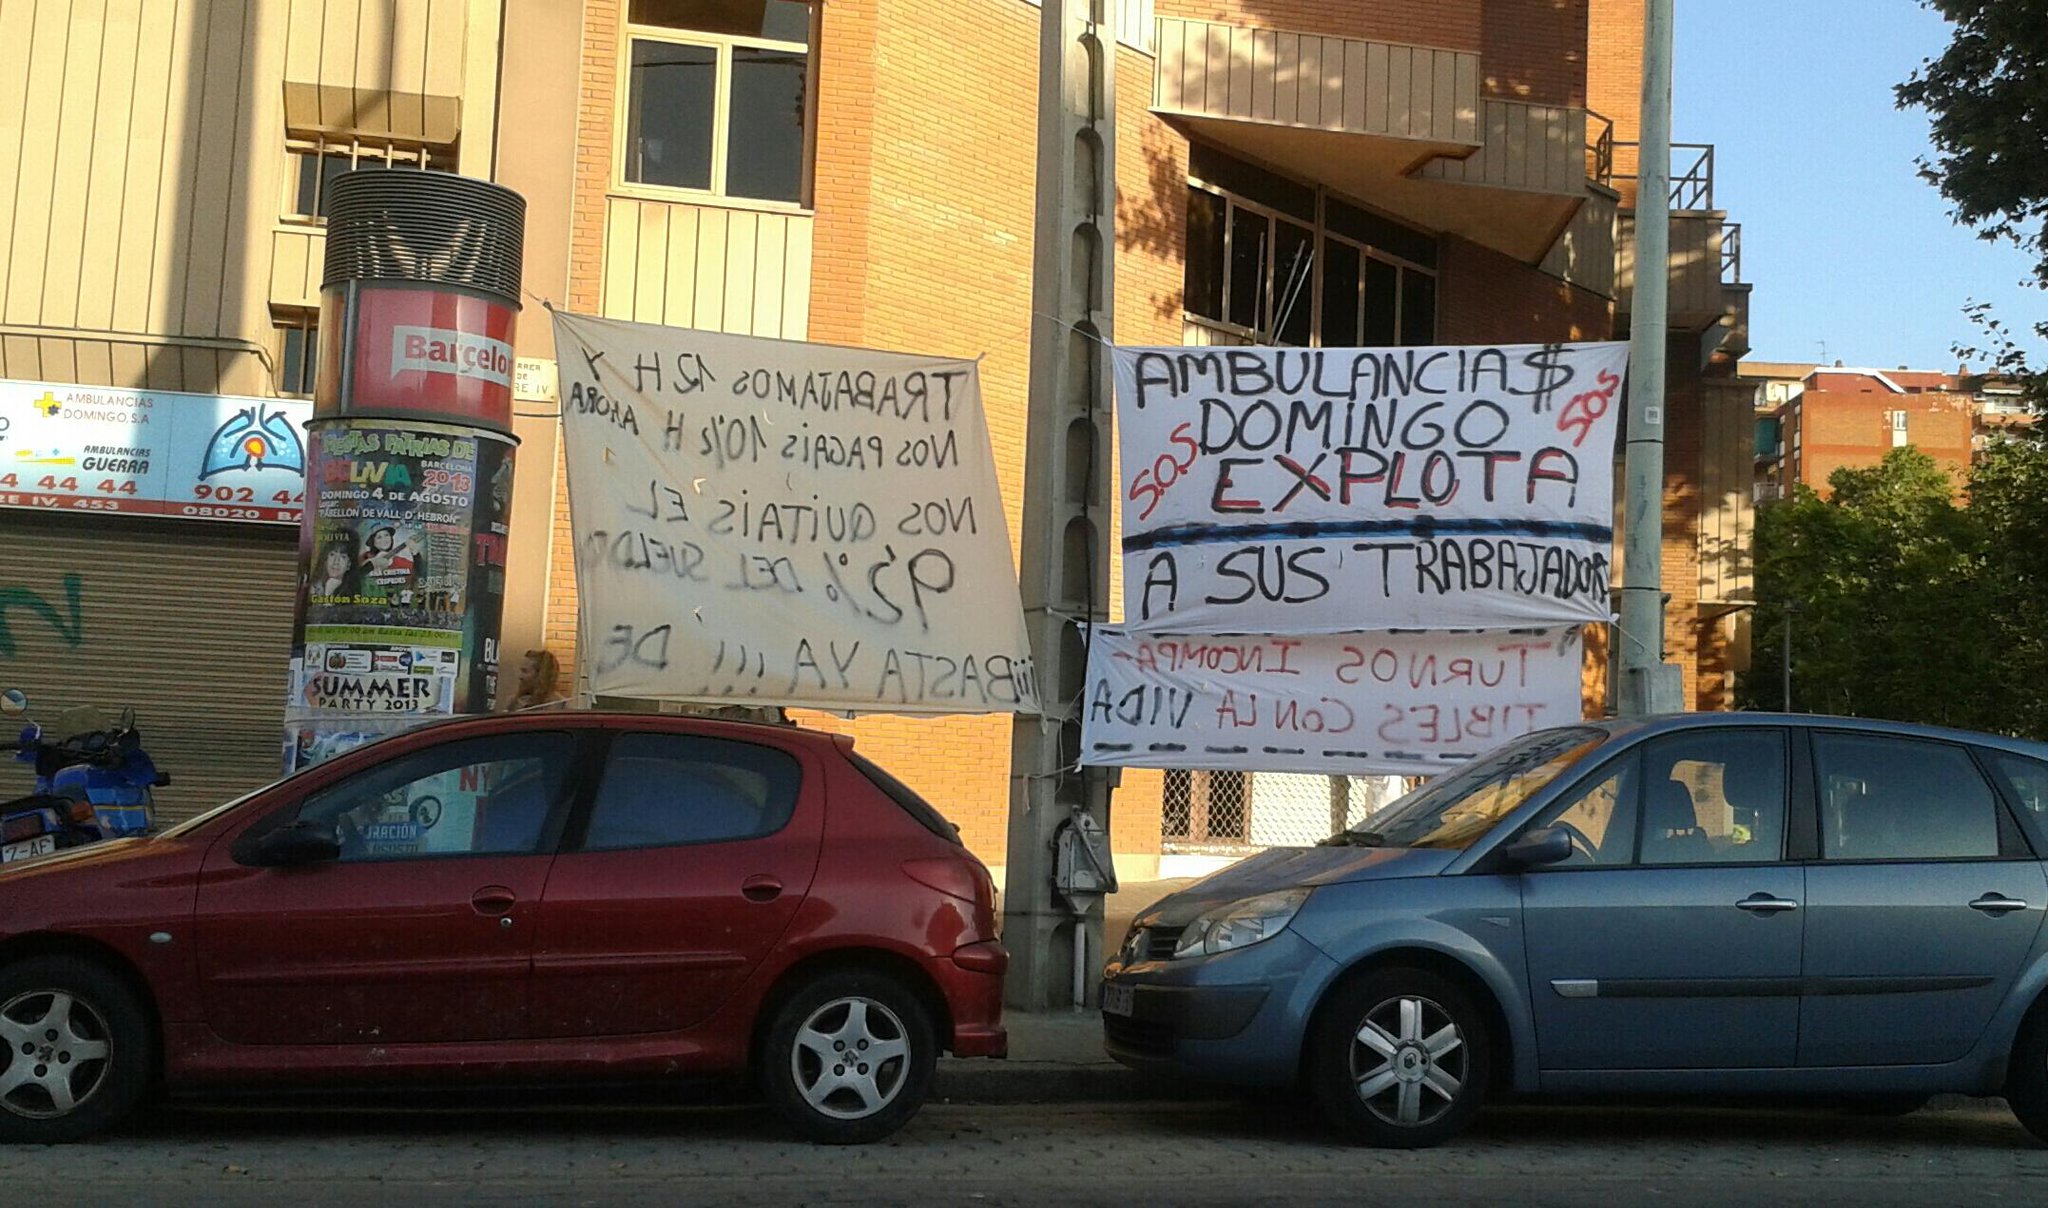 AMBULANCIAS
DOMINGO, S.A
AMBULANCIAS
GUERRA
4 44 44
902 44
RE IV, 453
08020 BA
Barcelon
RRER
DE
RE IV
FIESTAS PATRIAS DE
BOLIVIA
BARCELONA
2013
DOMINGO 4 DE AGOSTO
PABELLON DE VALL D'HEBRON
ANA CRISTINA
CESPEDES
Gastón Soza
SUMMER
PARTY 2013
NY
TRABAJAMOS 12 H Y
NOS PAGAIS 10'½ H AHORA
NOS QUITAIS EL
9'5% DEL SUELDO
¡¡¡BASTA YA!!! DE
AMBULANCIA$
DOMINGO
S.O.S
SOS
EXPLOTA
A SUS TRABAJADORS
TURNOS INCOMPA-
TIBLES CON LA VIDA
Z-AF